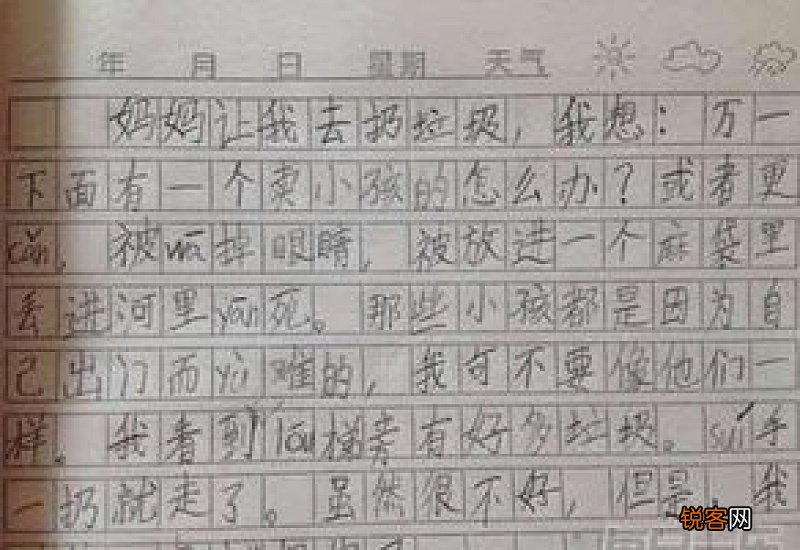 年 月 日 星期 天气
妈妈让我去扔垃圾，我想：万一
下面有一个卖小孩的怎么办？或者更
cǎn，被wā掉眼睛，被放进一个麻袋里
丢进河里yān死。那些小孩都是因为自
己出门而yù难的，我可不要像他们一
样。我看到lóu梯旁有好多垃圾。suí手
一扔就走了。虽然很不好，但是，我
锐客网